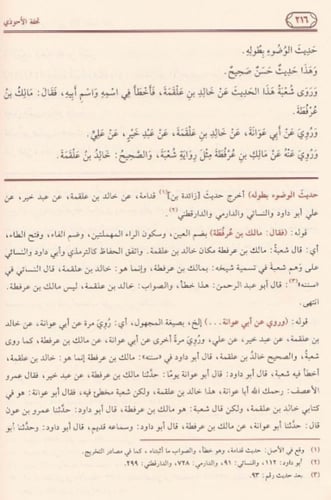 ٢١٦
تحفة الأحوذي
حَدِيثَ الْوُضُوءِ بِطُولِهِ.
وَهَذَا حَدِيثٌ حَسَنٌ صَحِيحٌ.
وَرَوَى شُعْبَةُ هَذَا الحَدِيثَ عَنْ خَالِدِ بنِ عَلْقَمَةَ، فَأَخْطَأَ فِي اسْمِهِ وَاسْمِ أَبِيهِ، فَقَالَ: مَالِكُ بنُ
عُرْفُطَةَ.
وَرُوِيَ عَنْ أَبِي عَوَانَةَ، عَنْ خَالِدِ بنِ عَلْقَمَةَ، عَنْ عَبْدِ خَيْرٍ، عَنْ عَلِيٍّ.
وَرُوِيَ عَنْهُ عَنْ مَالِكِ بنِ عُرْفُطَةَ مِثْلَ رِوَايَةِ شُعْبَةَ، وَالصَّحِيحُ: خَالِدُ بنُ عَلْقَمَةَ.
حديث الوضوء بطوله) أخرج حديث [زائدة بن](١) قدامة، عن خالد بن علقمة، عن عبد خير، عن
علي أبو داود والنسائي والدارمي والدارقطني(٢).
قوله: (فقال: مالك بن عُرفُطة) بضم العين، وسكون الراء المهملتين، وضم الفاء، وفتح الطاء،
أي: قال شعبةُ: مالك بن عرفطة مكان خالد بن علقمة. واتفق الحفاظ كالترمذي وأبي داود والنسائي
على وَهم شعبة في تسمية شيخه: بمالك بن عرفطة، وإنما هو: خالد بن علقمة، قال النسائي في
«سننه»(٣): قال أبو عبد الرحمن: هذا خطأ، والصواب: خالد بن علقمة، ليس مالك بن عرفطة.
انتهى.
قوله: (وروي عن أبي عوانة...) إلخ، بصيغة المجهول، أي: رُوِيَ مرة عن أبي عوانة، عن خالد
بن علقمة، عن عبد خير، عن علي، ورُوِيَ مرةً أخرى عن أبي عوانة، عن مالك بن عرفطة، كما روى
شعبةُ، والصحيح خالدُ بن علقمة، قال أبو داود في «سننه»: مالك بن عرفطة إنما هو: خالد بن علقمة،
أخطأ فيه شعبة، قال أبو داود: قال أبو عوانة يومًا: حدَّثنا مالك بن عرفطة، عن عبد خير، فقال عمرو
الأعصف: رحمك الله أبا عوانة، هذا خالد بن علقمة، ولكن شعبة مخطئ فيه، فقال أبو عوانة: هو في
كتابي خالد بن علقمة، ولكن قال لي شعبة: هو مالك بن عرفطة، قال أبو داود: حدَّثنا عمرو بن عون
قال: حدَّثنا أبو عوانة، عن مالك بن عرفطة، قال أبو داود: وسماعه قديم، قال أبو داود: وحدَّثنا أبو
(١) وقع في الأصل: حديث قدامة، وهو خطأ، والصواب ما أثبتناه، كما في مصادر التخريج.
(٢) أبو داود: ١١٢، والنسائي: ٩١، والدارمي: ٧٢٨، والدارقطني: ٢٩٩.
(٣) بعد حديث رقم: ٩٣.